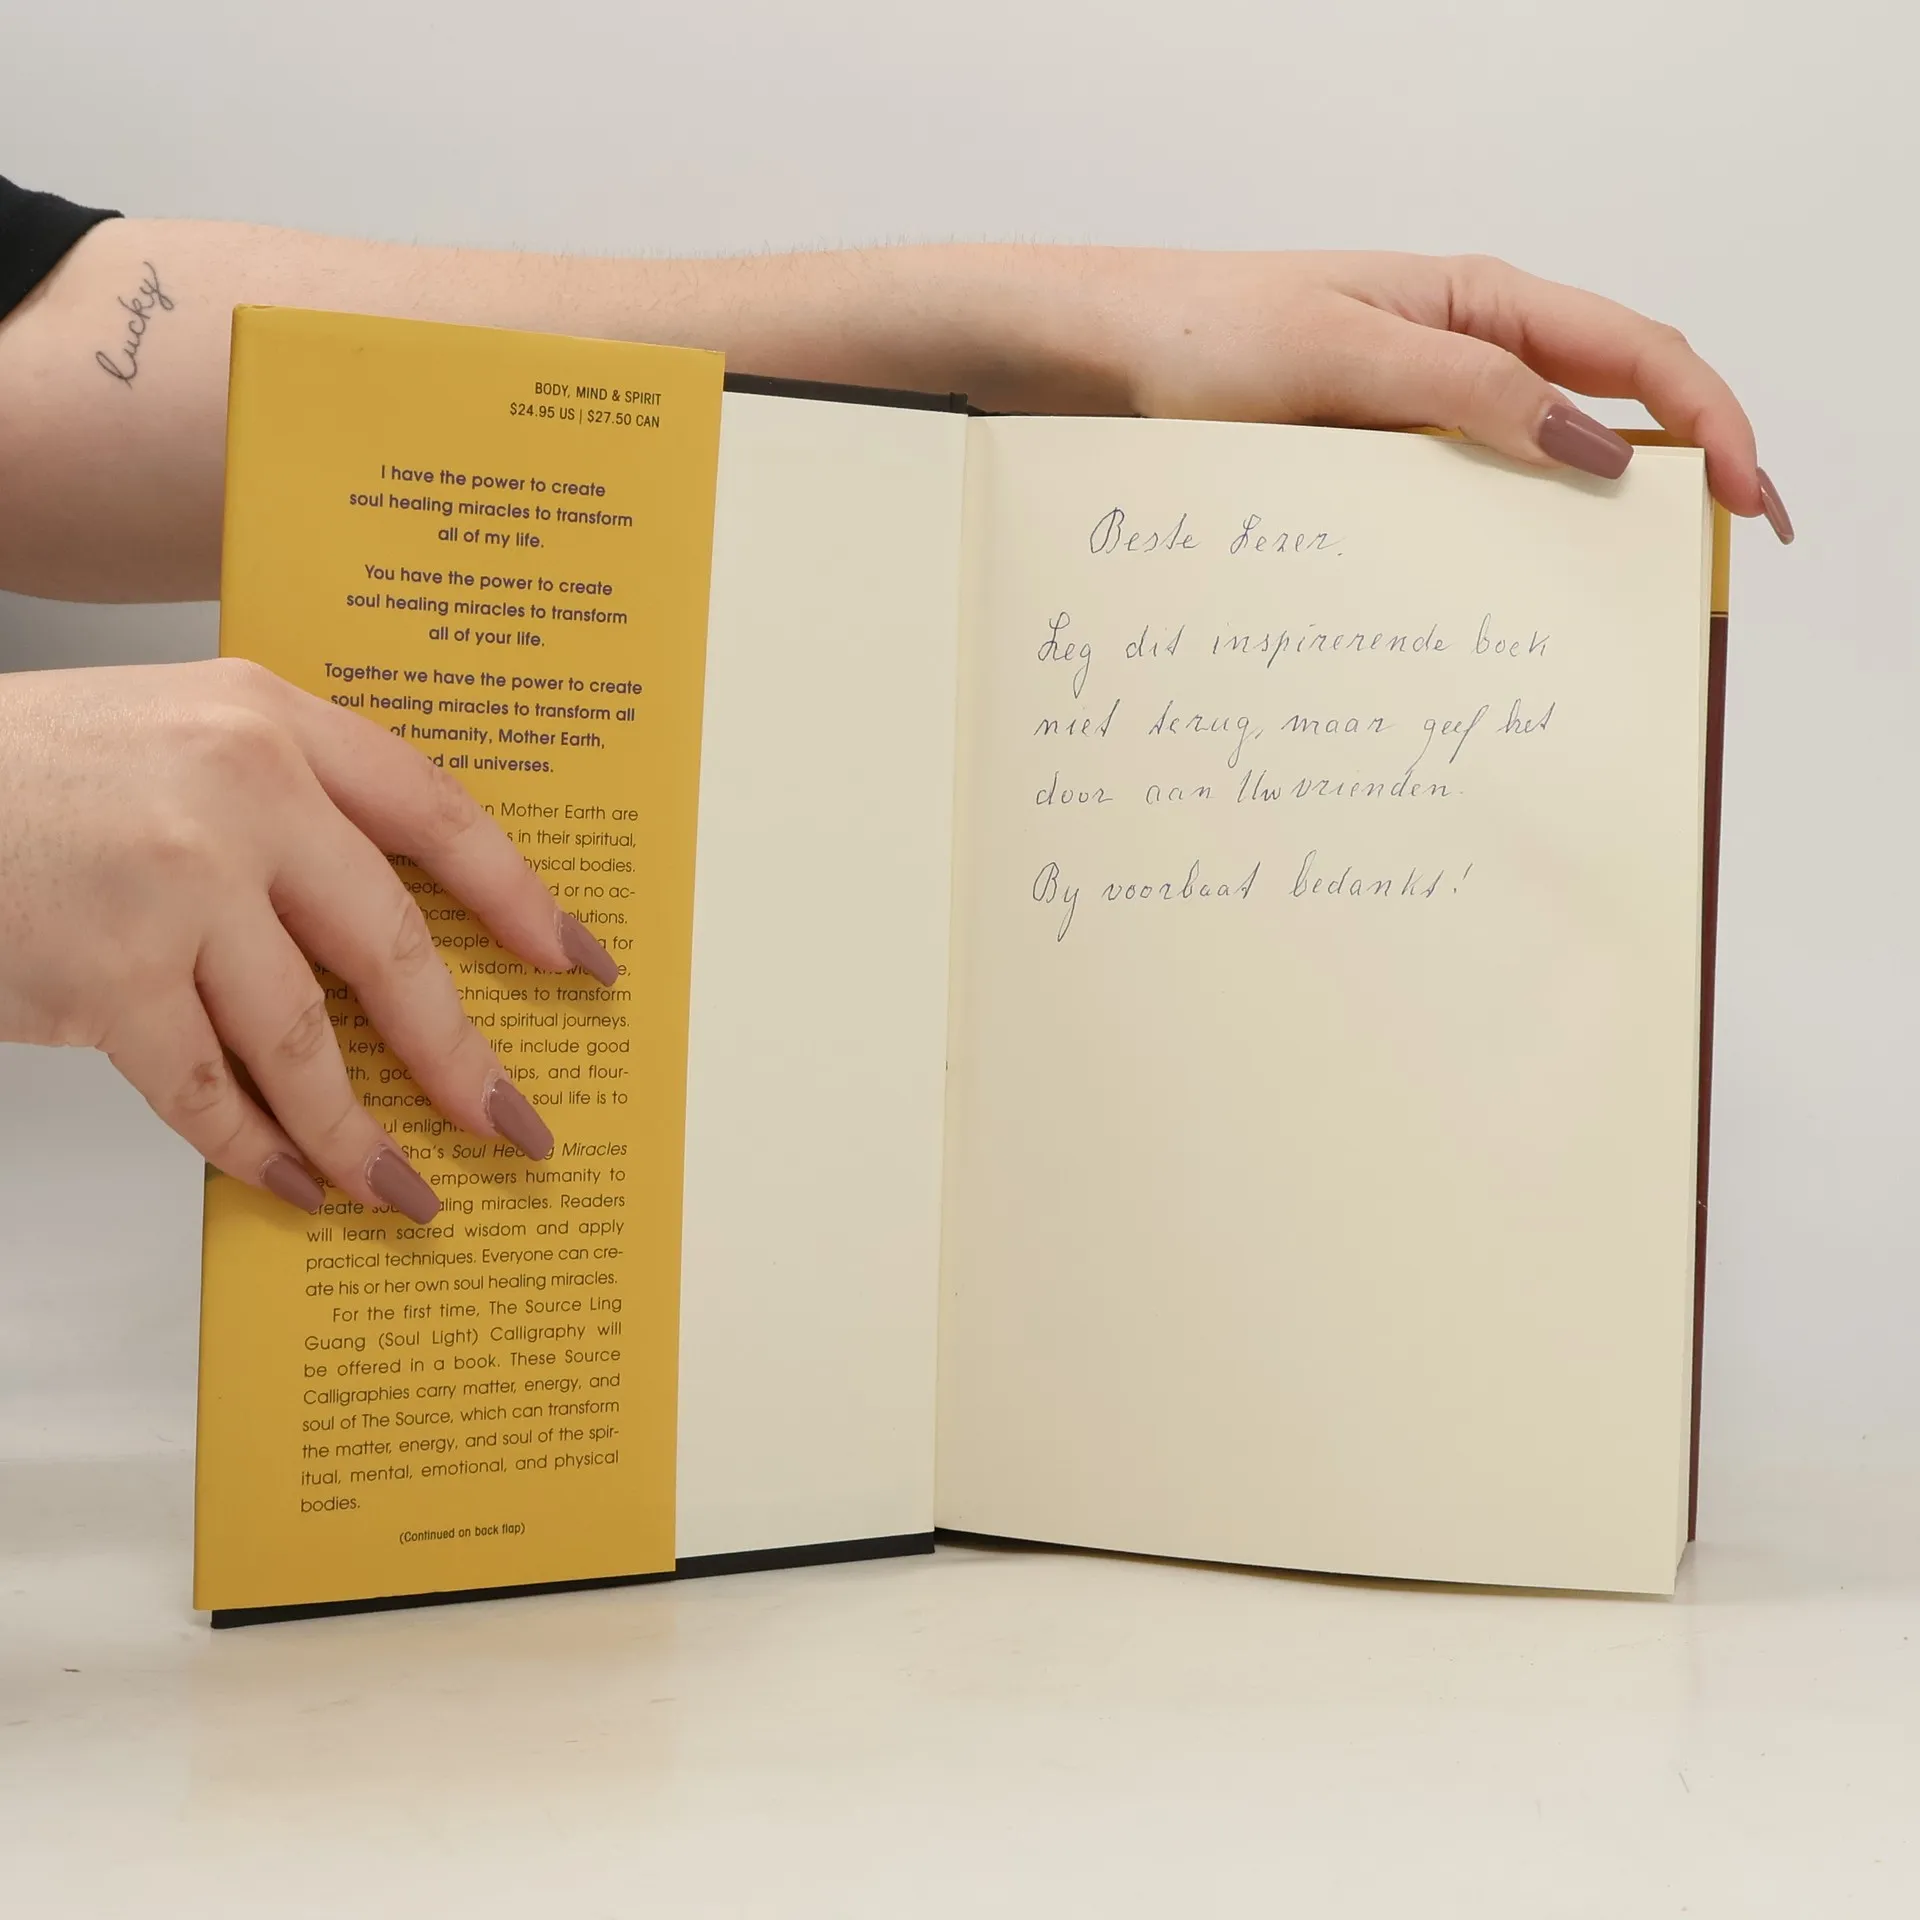 lucky
BODY, MIND & SPIRIT
$24.95 US | $27.50 CAN
I have the power to create
soul healing miracles to transform
all of my life.
You have the power to create
soul healing miracles to transform
all of your life.
Together we have the power to create
soul healing miracles to transform all
of humanity, Mother Earth,
all universes.
Mother Earth are
in their spiritual,
bodies.
or no ac-
people for
wisdom,
to transform
and spiritual journeys.
keys life include good
and flour-
finances soul life is to
Sha's Soul Miracles
empowers humanity to
miracles. Readers
will learn sacred wisdom and apply
practical techniques. Everyone can cre-
ate his or her own soul healing miracles.
For the first time, The Source Ling
Guang (Soul Light) Calligraphy will
be offered in a book. These Source
Calligraphies carry matter, energy, and
soul of The Source, which can transform
the matter, energy, and soul of the spir-
itual, mental, emotional, and physical
bodies.
(Continued on back flap)
Beste Lezer.
Leg dit inspirerende boek
niet terug, maar geef het
door aan Uw vrienden.
By voorbaat bedankt!